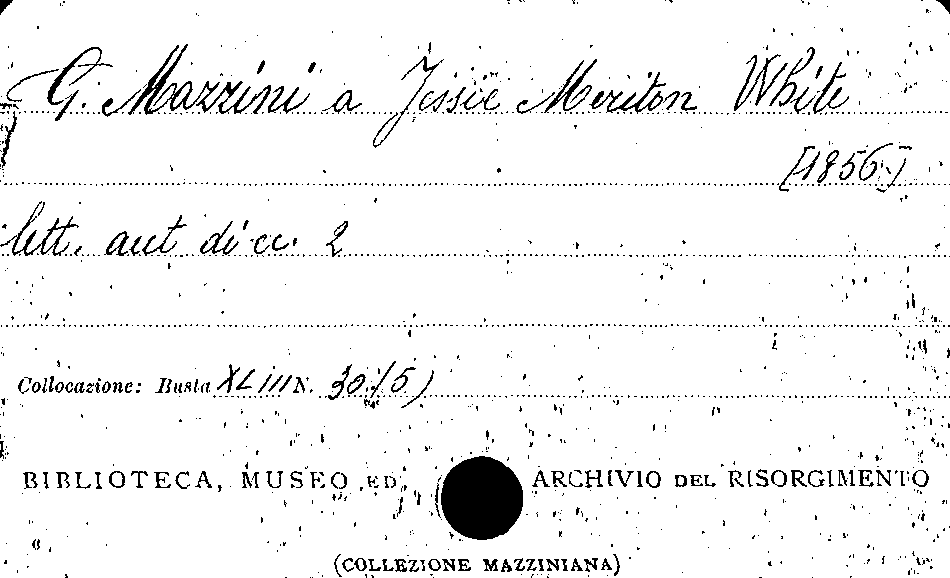 G. Mazzini a Jessie Meriton White
[1856]
lett. aut di cc. 2
Collocazione: Busta XLIII N. 30 (5)
BIBLIOTECA, MUSEO ED ARCHIVIO DEL RISORGIMENTO
(COLLEZIONE MAZZINIANA)